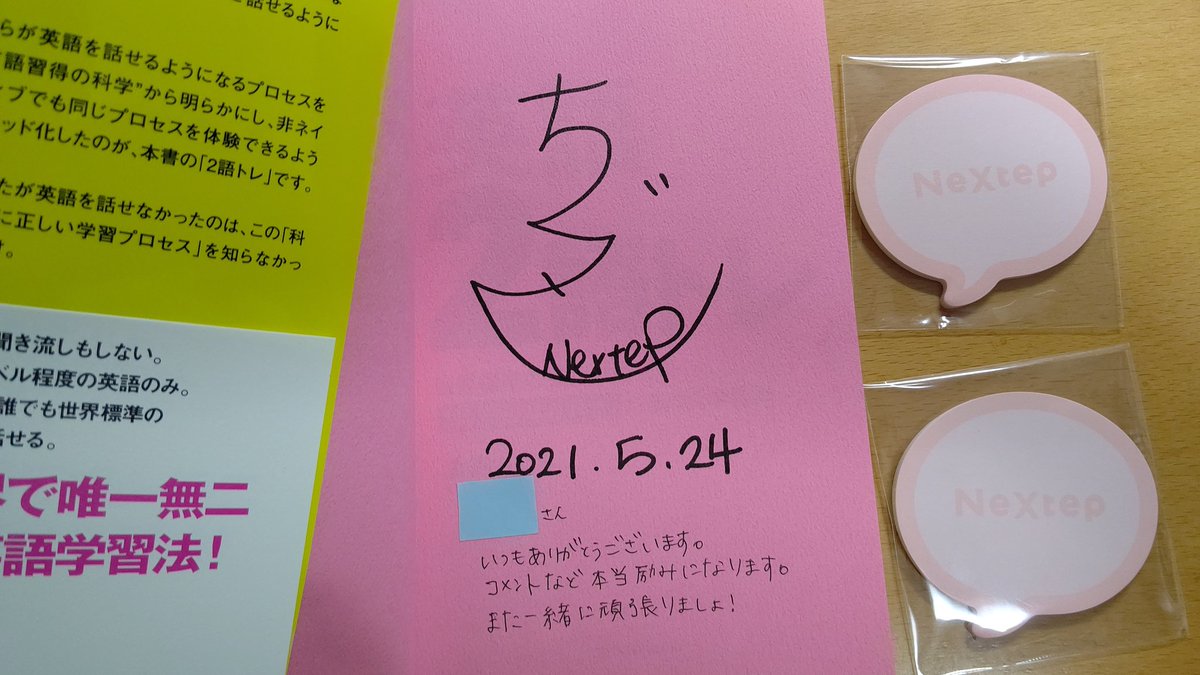 と話せるように
らが英語を話せるようになるプロセスを
語習得の科学”から明らかにし、非ネイ
ィブでも同じプロセスを体験できるよう
ッド化したのが、本書の「2語トレ」です。
たが英語を話せなかったのは、この「科
に正しい学習プロセス」を知らなかっ
け。
聞き流しもしない。
ベル程度の英語のみ。
誰でも世界標準の
話せる。
界で唯一無二
英語学習法!
Nextep
2021.5.24
さん
いつもありがとうございます。
コメントなど本当励みになります。
また一緒に頑張りましょ!
NeXtep
NeXtep